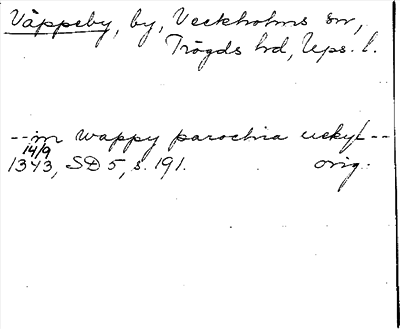 Väppeby, by, Veckholms sn,
Trögds hd, Ups. l.
-- in wappy parochia vekyl --
14/9
1343, SD 5, s. 191. orig.